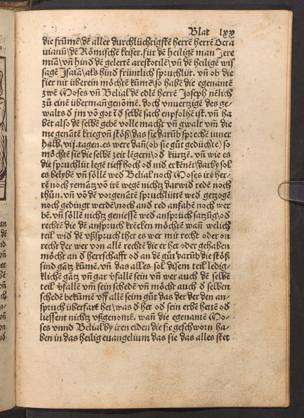 Blat lxx
die frümē de aller durchlüchtigistē herrē herrē Octa
uianū de Römischē keiser. für de heiligē man Jere
miā vñ hind de gelertē arestotilē vñ de heiligē wis
sagē Isaiā/als hind früntlich spruchlüt. vñ ob die
fier nit überein möchtē kūmē so habē die egenantē
zwē Moses vñ Belial de edlē herrē Joseph nēlich
zū eine übermañ genomē. doch vnuerzigē des ge
walts d im vō got d selbē sach empfolhē ist. vñ ha
bēt also de selbē gebē volle macht vñ gwalt vm die
me genātē krieg vñ stöß das sie darüb sprechē inner
halb. vij. tagen. es were dañ (ob sie gūt geducht) so
möchtē sie die selbē zeit legern/od kurtzē. vñ wie es
die spruchlüt legē tieff hoch od nid erkenē/darbi sol
es belybē vñ söllē wed Belial noch Moses ire her
rē noch yemātz vō irē wegē nichtz darwid redē noch
thūn. vñ vō de vorgenātē spruchlütē wed getzogē
noch gedingt werdē/noch and red anfahē noch wer
bē. vñ söllē nichtz geniessē wed anspruch satzūg/od
rechtē die de anspruch krēckē möchtē wañ welich
teil wid de vßspruch thet es wer mit recht/ oder on
recht der wer von allē rechtē die er het oder gehabē
möcht an d herrschafft od an de gūt darüb die stöß
sind gātz kumē. vñ das alles sol disem teil ledig-
kliche gātz vñ gar vfallē sein vñ wer auch de selbē
teil vfallē vm sein schedē vñ möcht auch d selben
schedē bekūmē vff allē seim gūt das der der den an-
spruch überfart het/was d her od sein erbē hettē od
liessent nichtz vßgenomē. wañ die egenantē Mo-
ses vnnd Belial by iren eiden die sie geschworn ha-
ben in das heilig euangelium das sie das alles stet